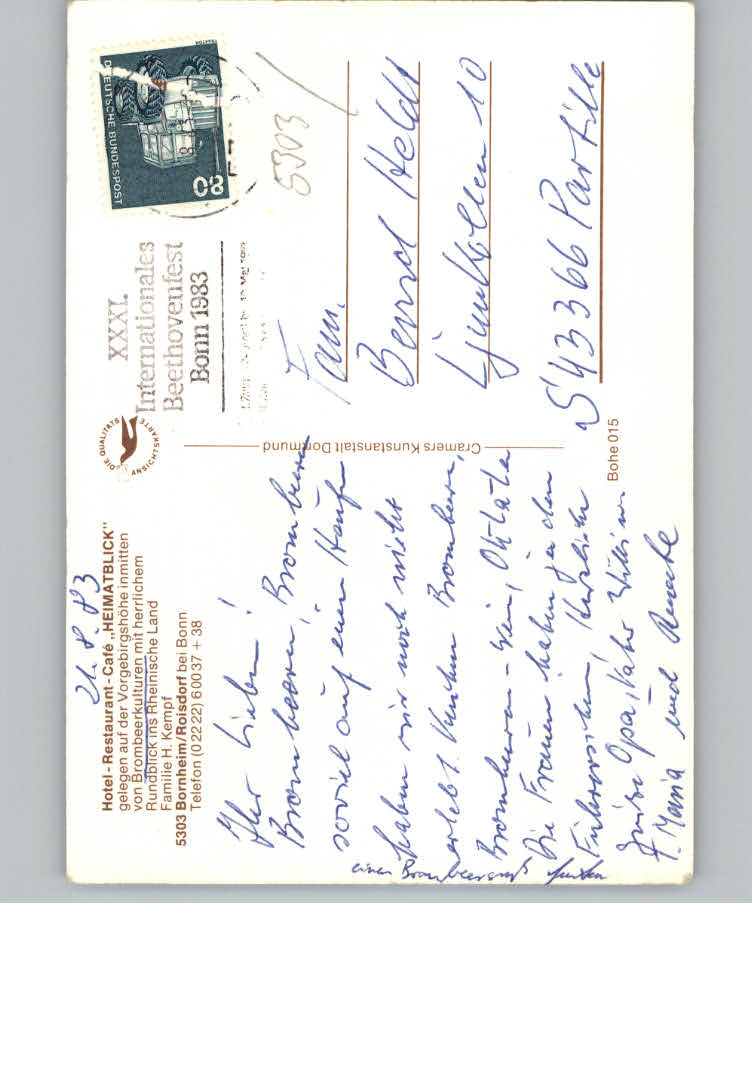 21.8.83
Hotel - Restaurant - Café „HEIMATBLICK"
gelegen auf der Vorgebirgshöhe inmitten
von Brombeerkulturen mit herrlichem
Rundblick ins Rheinische Land
Familie H. Kempf
5303 Bornheim/Roisdorf bei Bonn
Telefon (0 22 22) 6 00 37 + 38
Ihr Lieben!
Brombeeren, Brombeeren
soviel auf einen Haufen
haben wir noch nicht
erlebt. Kuchen Brombeeren,
Brombeeren-Wein,
Die Frauen haben ja den
Führerschein, Herzliche
Grüße Opa, Vater
T. Maria und
einen Brombeergruß
DIE QUALITÄTS ANSICHTSKARTE
Cramers Kunstanstalt Dortmund
Bohe 015
XXXI.
Internationales
Beethovenfest
Bonn 1983
TRAKTOR
DEUTSCHE BUNDESPOST
80
5303
Fam.
Bernd Heldt
10
S 433 66 Partille